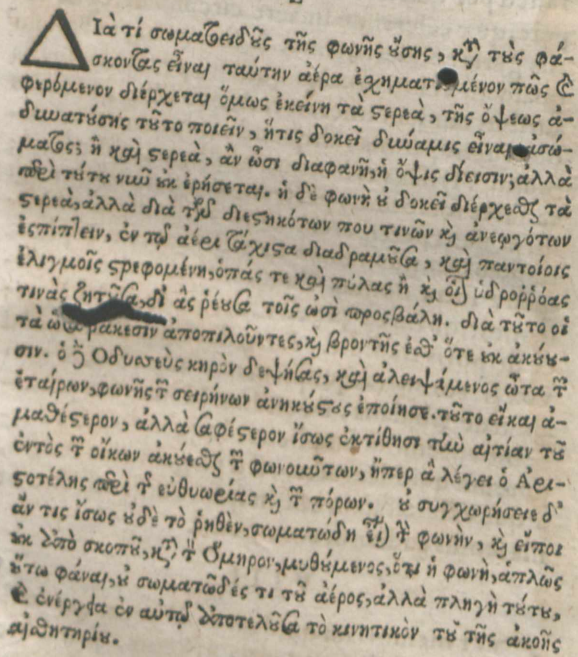 Διὰ τί σωματοειδοῦς τῆς φωνῆς οὔσης, κατὰ τοὺς φά-
σκοντας εἶναι ταύτην ἀέρα ἐσχηματισμένον πῶς καὶ
φερόμενον διέρχεται ὅμως ἐκείνη τὰ στερεὰ, τῆς ὄψεως ἀ-
δυνατούσης τοῦτο ποιεῖν, ἥτις δοκεῖ δύναμις εἶναι ἀσώ-
ματος; ἢ καὶ στερεὰ, ἂν ὦσι διαφανῆ, ἡ ὄψις δίεισιν; ἀλλὰ
περὶ τούτου νῦν οὐκ ἐρήσεται. ἡ δὲ φωνὴ οὐ δοκεῖ διέρχεσθαι τὰ
στερεὰ, ἀλλὰ διὰ τῶν διεστηκότων που τινῶν καὶ ἀνεῳγότων
ἐσπίπτειν, ἐν τῷ ἀέρι τάχιστα διαδραμοῦσα, καὶ παντοίοις
ἑλιγμοῖς στρεφομένη, ὀπάς τε καὶ πύλας ἢ καὶ ὑδρορρόας
τινὰς ζητοῦσα, δι' ἃς ῥέουσα τοῖς ὠσὶ προσβάλη. διὰ τοῦτο οἱ
τὰ ὦτα ῥάκεσιν ἀποπιλοῦντες, καὶ βροντῆς ἔσθ' ὅτε οὐκ ἀκούου-
σιν. ὁ γὰρ Ὀδυσσεὺς κηρὸν δεψήσας, καὶ ἀλειψάμενος ὦτα τῶν
ἑταίρων, φωνῆς τῶν σειρήνων ἀνηκούστους ἐποίησε. τοῦτο εἰκαὶ ἀ-
μαθέστερον, ἀλλὰ σαφέστερον ἴσως ἐκτίθησι τὴν αἰτίαν τοῦ
ἐντὸς τῶν οἴκων ἀκούεσθαι τῶν φωνούντων, ἤπερ ἃ λέγει ὁ Ἀρι-
στοτέλης περὶ τῆς εὐθυωρίας καὶ τῶν πόρων. οὐ συγχωρήσειε δ'
ἄν τις ἴσως οὐδὲ τὸ ῥηθὲν, σωματώδη εἶναι τὴν φωνὴν, καὶ εἴποι
οὐκ ἀπὸ σκοποῦ, κατὰ τὸν Ὅμηρον, μυθούμενος, ὅτι ἡ φωνὴ, ἁπλῶς
οὕτω φάναι, οὐ σωματῶδές τι τοῦ ἀέρος, ἀλλὰ πληγὴ τούτου,
καὶ ἐνέργεια ἐν αὐτῷ ἀποτελοῦσα τὸ κινητικὸν τοῦ τῆς ἀκοῆς
αἰσθητηρίου.